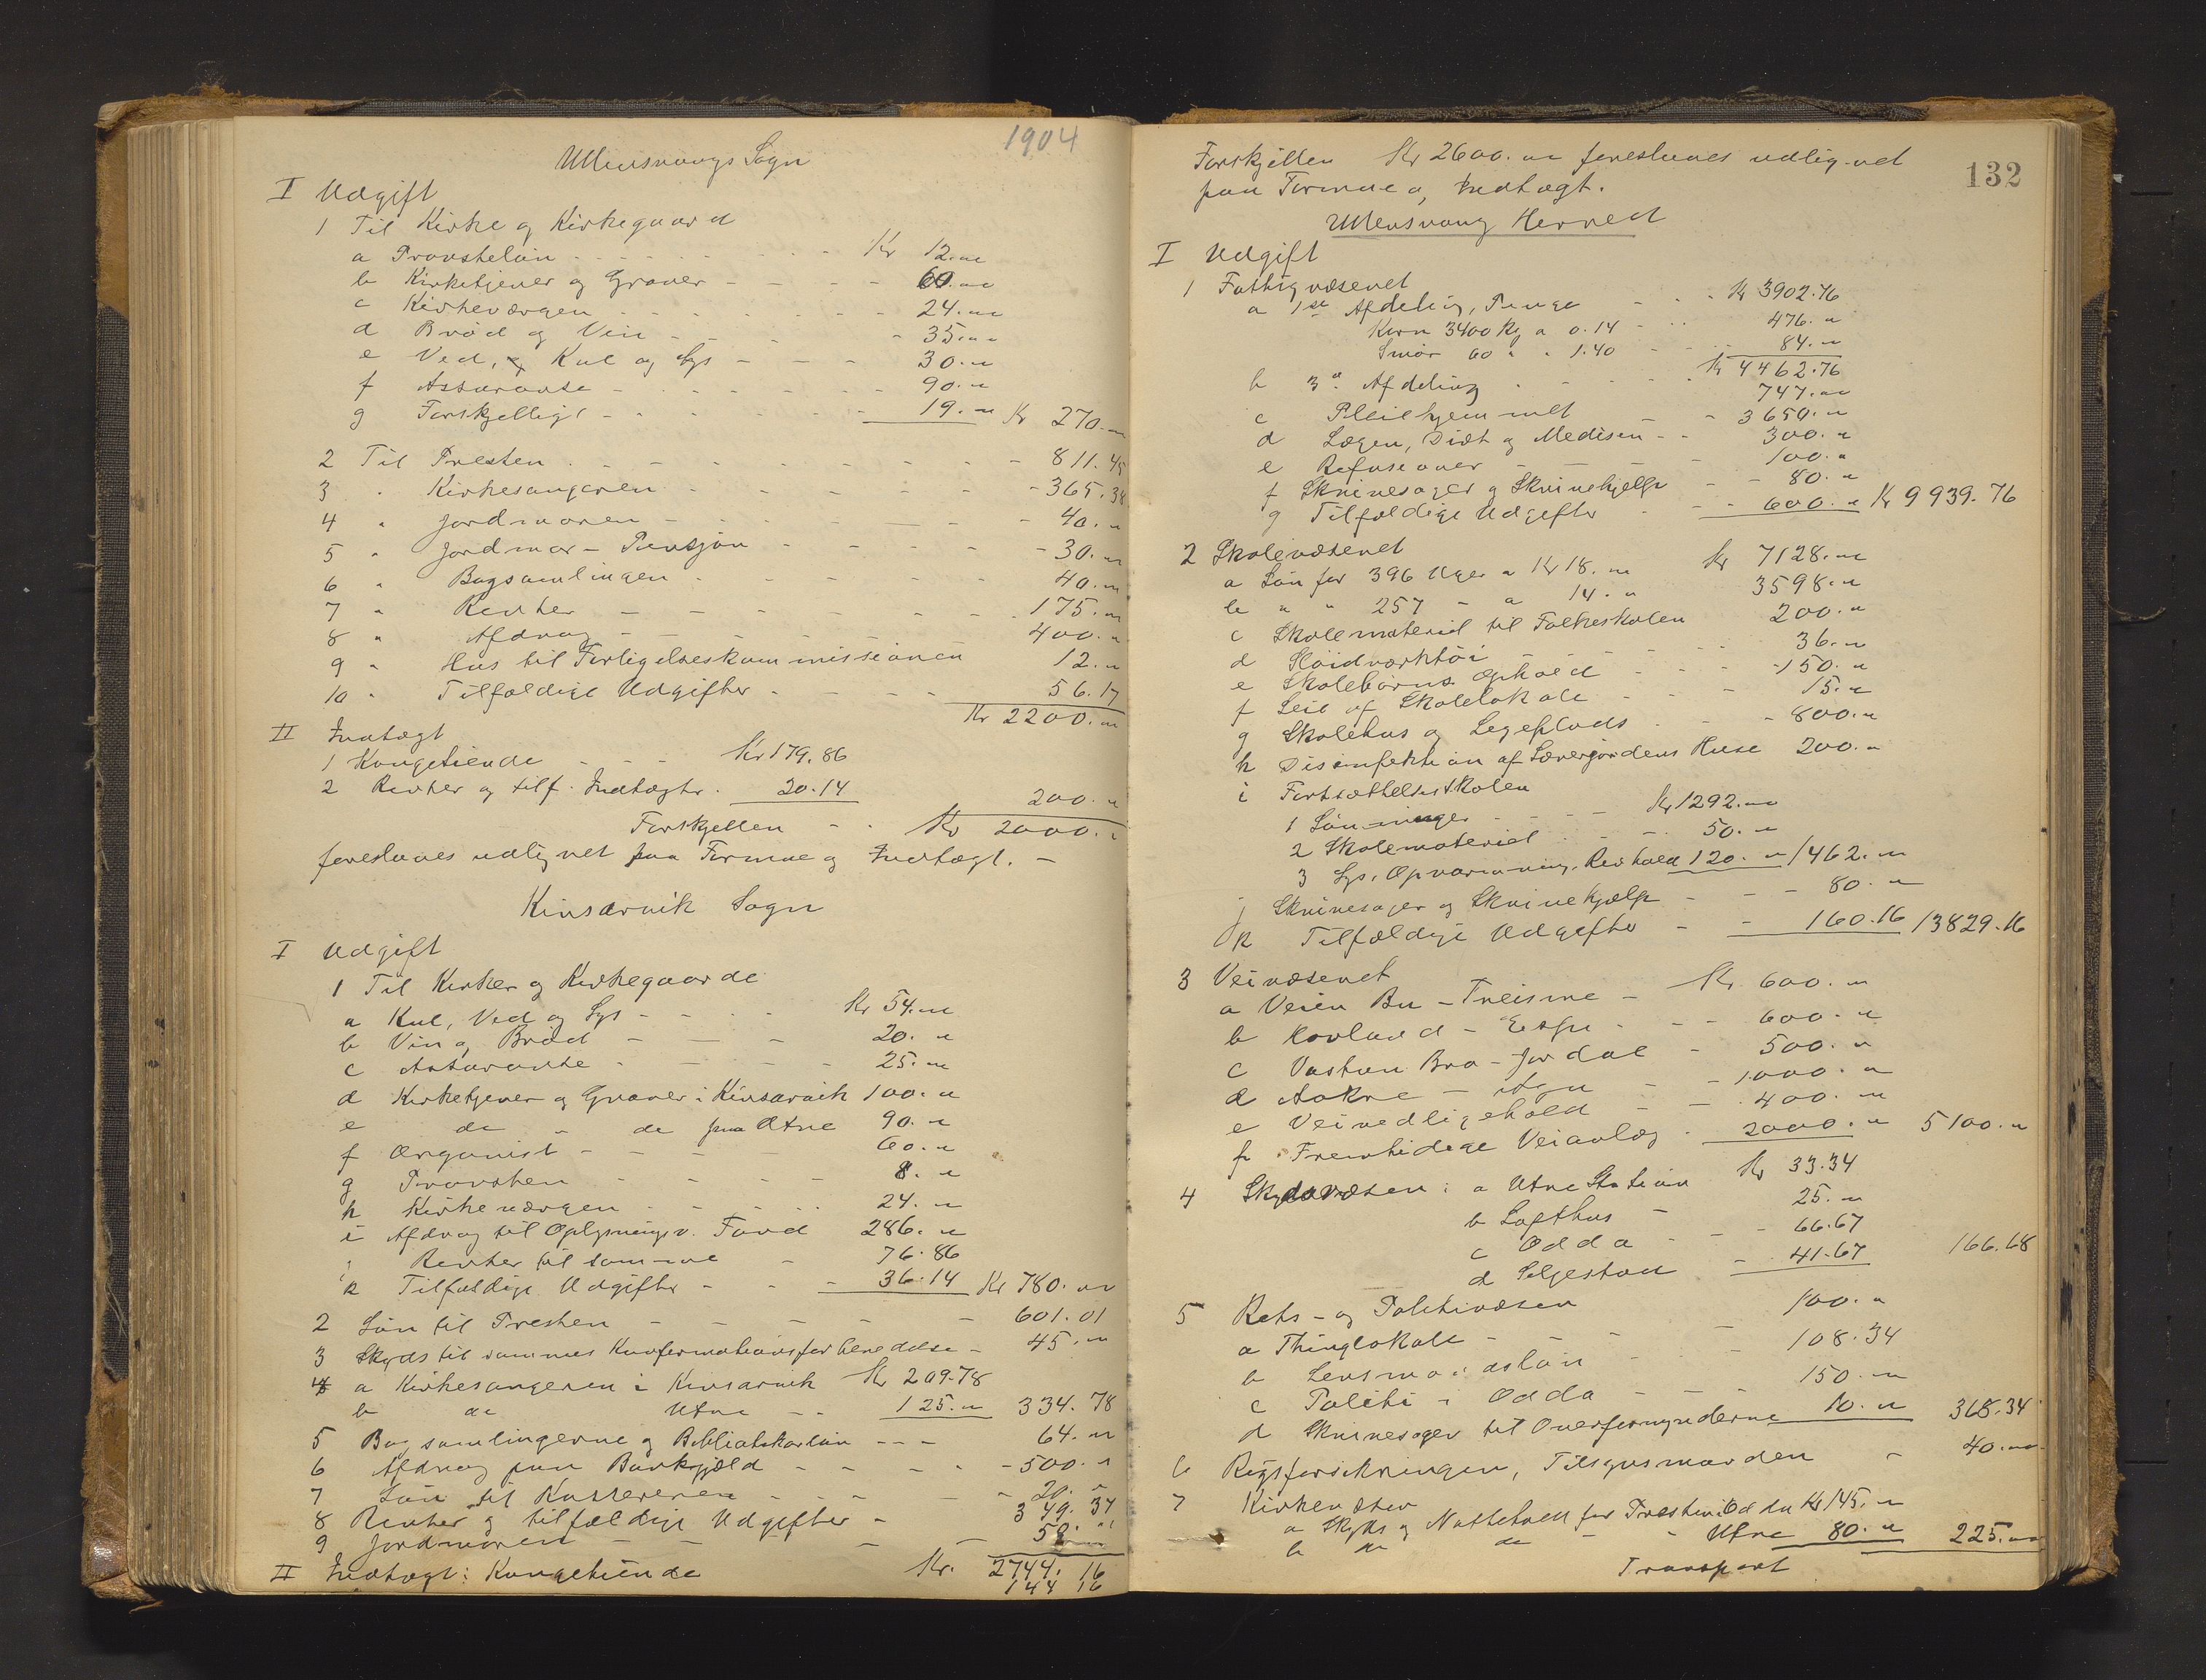 1904
Ullensvangs Sogn
I Udgift
1 Til Kirke og Kirkegaard
a Provsteløn - - - Kr 12.00
b Kirketjener og Graver - - - 60.00
c Kirkeværgen - - - 24.00
d Brød og Vin - - - 35.00
e Ved, Kul og Lys - - - 30.00
f Assuranse - - - 90.00
g Forskjelligt - - - 19.00 Kr 270.00
2 Til Presten - - - 811.45
3 " Kirkesangeren - - - 365.38
4 " Jordmoren - - - 40.00
5 " Jordmor-Pensjon - - - 30.00
6 " Bogsamlingen - - - 40.00
7 " Renter - - - 175.00
8 " Afdrag - - - 400.00
9 " Hus til Forligelseskommissionen 12.00
10 " Tilfældige Udgifter - - - 56.17
Kr 2200.00
II Indtægt
1 Kongetiende - - - Kr 179.86
2 Renter og tilf. Indtægter. 20.14 200.00
Forskjellen - - Kr 2000.00
foreslaaes udlignet paa Formue og Indtægt. -
Kinsarvik Sogn
I Udgift
1 Til Kirker og Kirkegaarde
a Kul, Ved og Lys - - - Kr 54.00
b Vin og Brød - - - 20.00
c Assuranse - - - 25.00
d Kirketjener og Graver i Kinsarvik 100.00
e do " do paa Utne 90.00
f Organist - - - 60.00
g Provsten - - - 8.00
h Kirkeværgen - - - 24.00
i Afdrag til Oplysningsv. Fond 286.00
j Renter til samme - 76.86
k Tilfældige Udgifter - - - 36.14 Kr 780.00
2 Løn til Presten - - - 601.01
3 Skyds til sammes Konfirmationsforberedelse - 45.00
4 a Kirkesangeren i Kinsarvik Kr 209.78
b do Utne - - 125.00 334.78
5 Bogsamlingerne og Bibliotekarløn - - - 64.00
6 Afdrag paa Bankgjæld - - - 500.00
7 Løn til Kassereren - - - 20.00
8 Renter og tilfældige Udgifter - 349.37
9 Jordmoren - - - 50.00
Kr. 2744.16
II Indtægt: Kongetiende 144 16
132
Forskjellen Kr 2600.00 foreslaaes udlignet
paa Formue og Indtægt.
Ullensvang Herred
I Udgift
1 Fattigvæsenet
a 1ste Afdeling, Penge - - - Kr 3902.76
Korn 3400 Kg a 0.14 - - 476.00
Smør 60 " " 1.40 - - 84.00
Kr 4462.76
b 3die Afdeling - - - 747.00
c Pleiehjemmet - - 3650.00
d Lægen, Diæt og Medisin - - 300.00
e Refusioner - - - 100.00
f Skrivesager og Skrivehjælp - - 80.00
g Tilfældige Udgifter - - - 600.00 Kr 9939.76
2 Skolevæsenet
a Løn for 396 Uger a Kr 18.00 Kr 7128.00
b " " 257 - a 14.00 3598.00
c Skolemateriel til Folkeskolen 200.00
d Sløidverktøi - - - 36.00
e Skolebørns Ophold - - - 150.00
f Leie af Skolelokale - - - 15.00
g Skolehus og Legeplads - - - 800.00
h Disinfektion af Lærergaardens Huse 200.00
i Fortsættelsesskolen
1 Lønninger - - - Kr 1292.00
2 Skolemateriel - - - 50.00
3 Lys. Opvarmning. Renhold 120.00 1462.00
j Skrivesager og Skrivehjælp - - - 80.00
k Tilfældige Udgifter - - 160.16 13829.16
3 Veivæsenet
a Veien Bu - Treisme - Kr 600.00
b Hovland - Espe - - - 600.00
c Vastun Bro - Jordal - 500.00
d Aakre - Aga - - 1000.00
e Veivedligehold - - 400.00
f Fremtidige Veianlæg - 2000.00 5100.00
4 Skydsvæsen: a Utne Station Kr 33.34
b Lofthus - 25.00
c Odda - - - 66.67
d Seljestad - 41.67 166.68
5 Rets- og Politivæsen
a Thinglokale - - - 100.00
b Lensmandsløn - - 108.34
c Politi i Odda - - - 150.00
d Skrivesager til Overformynderne 10.00 368.34
6 Rigsforsikringen, Tilsynsmanden - 40.00
7 Kirkevæsen
a Skyds og Nattehold for Presten i Odda Kr 145.00
b do do - Utne 80.00 225.00
Transport